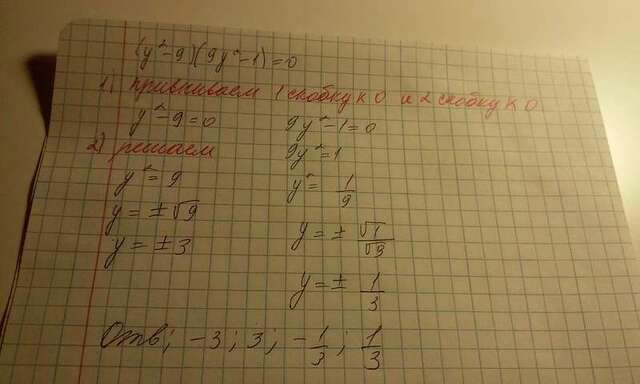 (y²-9)(9y²-1)=0
1) приравниваем 1 скобку к 0 и 2 скобку к 0
y²-9=0
9y²-1=0
2) решаем
9y²=1
y²=9
y²=1/9
y=±√9
y=±√1/√9
y=±3
y=±1/3
Отв; -3; 3; -1/3; 1/3